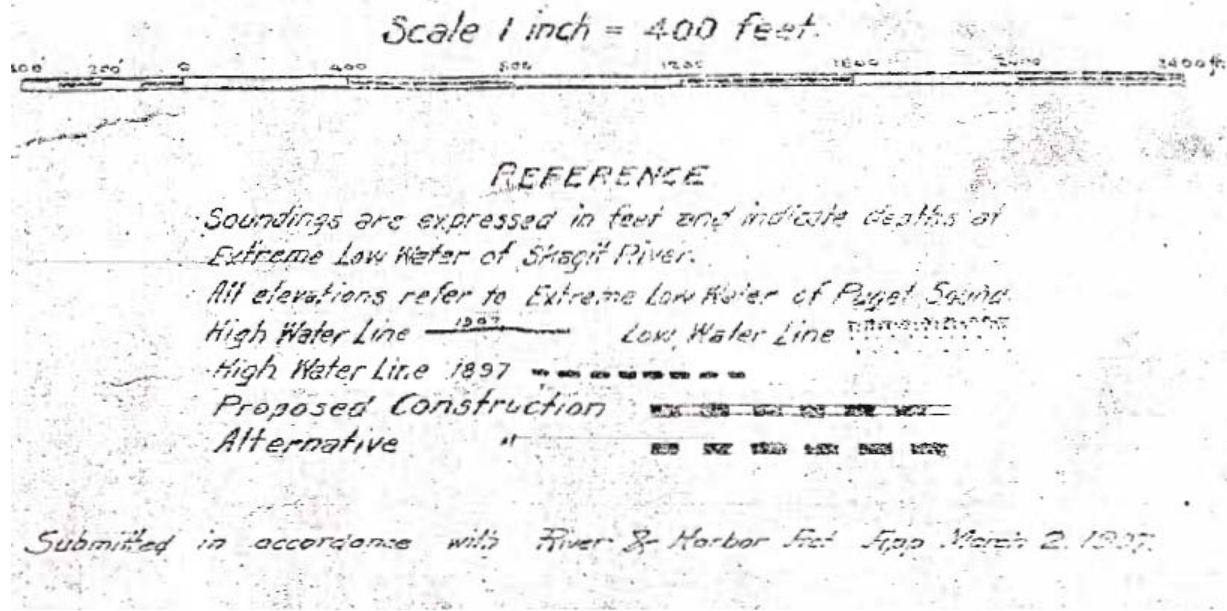 Scale 1 inch = 400 feet.
400 200 0 400 800 1200 1600 2000 2400 ft.
REFERENCE
Soundings are expressed in feet and indicate depths at
Extreme Low Water of Skagit River.
All elevations refer to Extreme Low Water of Puget Sound.
High Water Line 1907 Low Water Line
High Water Line 1897
Proposed Construction
Alternative "
Submitted in accordance with River & Harbor Act App March 2, 1907.